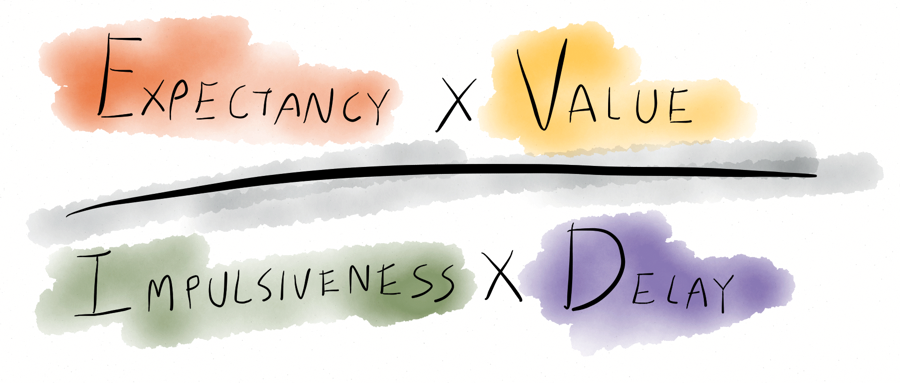 EXPECTANCY X VALUE
IMPULSIVENESS X DELAY